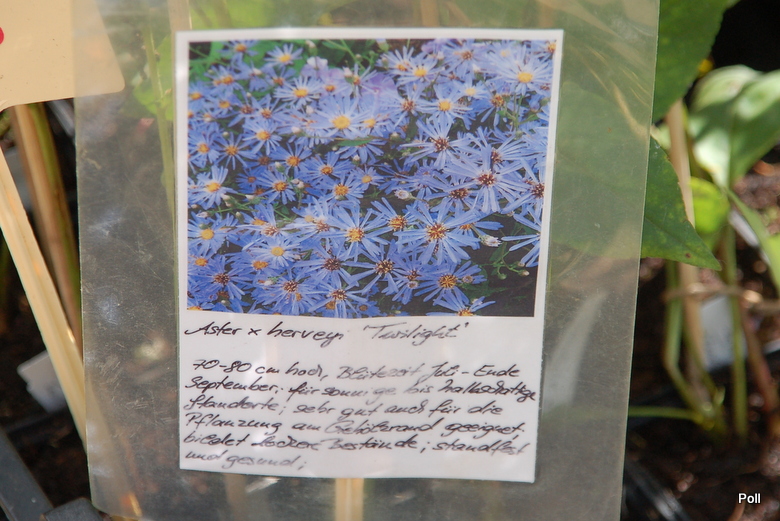 Aster x herveyi 'Twilight'
70-80 cm hoch, Blütezeit Juli - Ende
September; für sonnige bis halbschattige
Standorte; sehr gut auch für die
Pflanzung am Gehölzrand geeignet,
bildet lockere Bestände; standfest
und gesund;
Poll